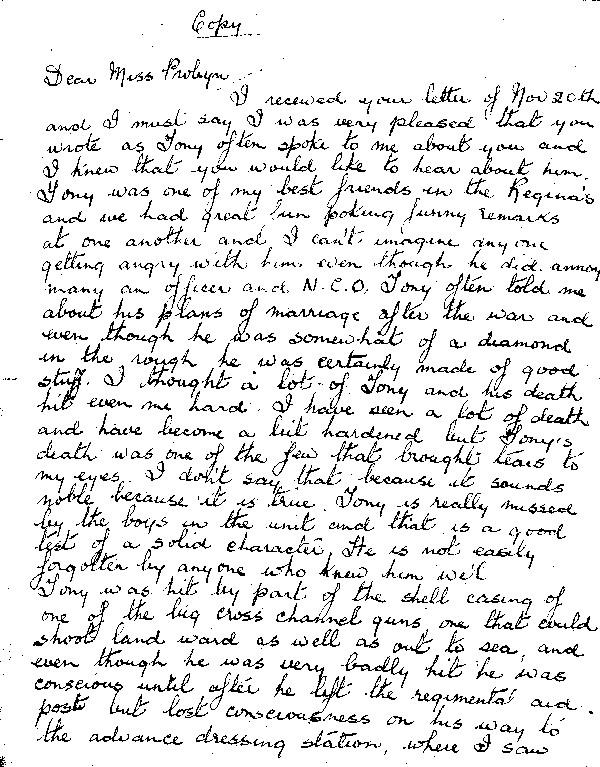 Copy
Dear Miss Probyn
I received your letter of Nov 20th
and I must say I was very pleased that you
wrote as Tony often spoke to me about you and
I knew that you would like to hear about him.
Tony was one of my best friends in the Regina's
and we had great fun poking funny remarks
at one another and I can't imagine anyone
getting angry with him even though he did annoy
many an officer and N.C.O. Tony often told me
about his plans of marriage after the war and
even though he was somewhat of a diamond
in the rough he was certainly made of good
stuff. I thought a lot of Tony and his death
hit even me hard. I have seen a lot of death
and have become a bit hardened but Tony's
death was one of the few that brought tears to
my eyes. I don't say that because it sounds
noble because it is true. Tony is really missed
by the boys in the unit and that is a good
test of a solid character. He is not easily
forgotten by anyone who knew him well
Tony was hit by part of the shell casing of
one of the big cross channel guns, one that could
shoot land ward as well as out to sea, and
even though he was very badly hit he was
conscious until after he left the regimental aid
post but lost consciousness on his way to
the advance dressing station, where I saw